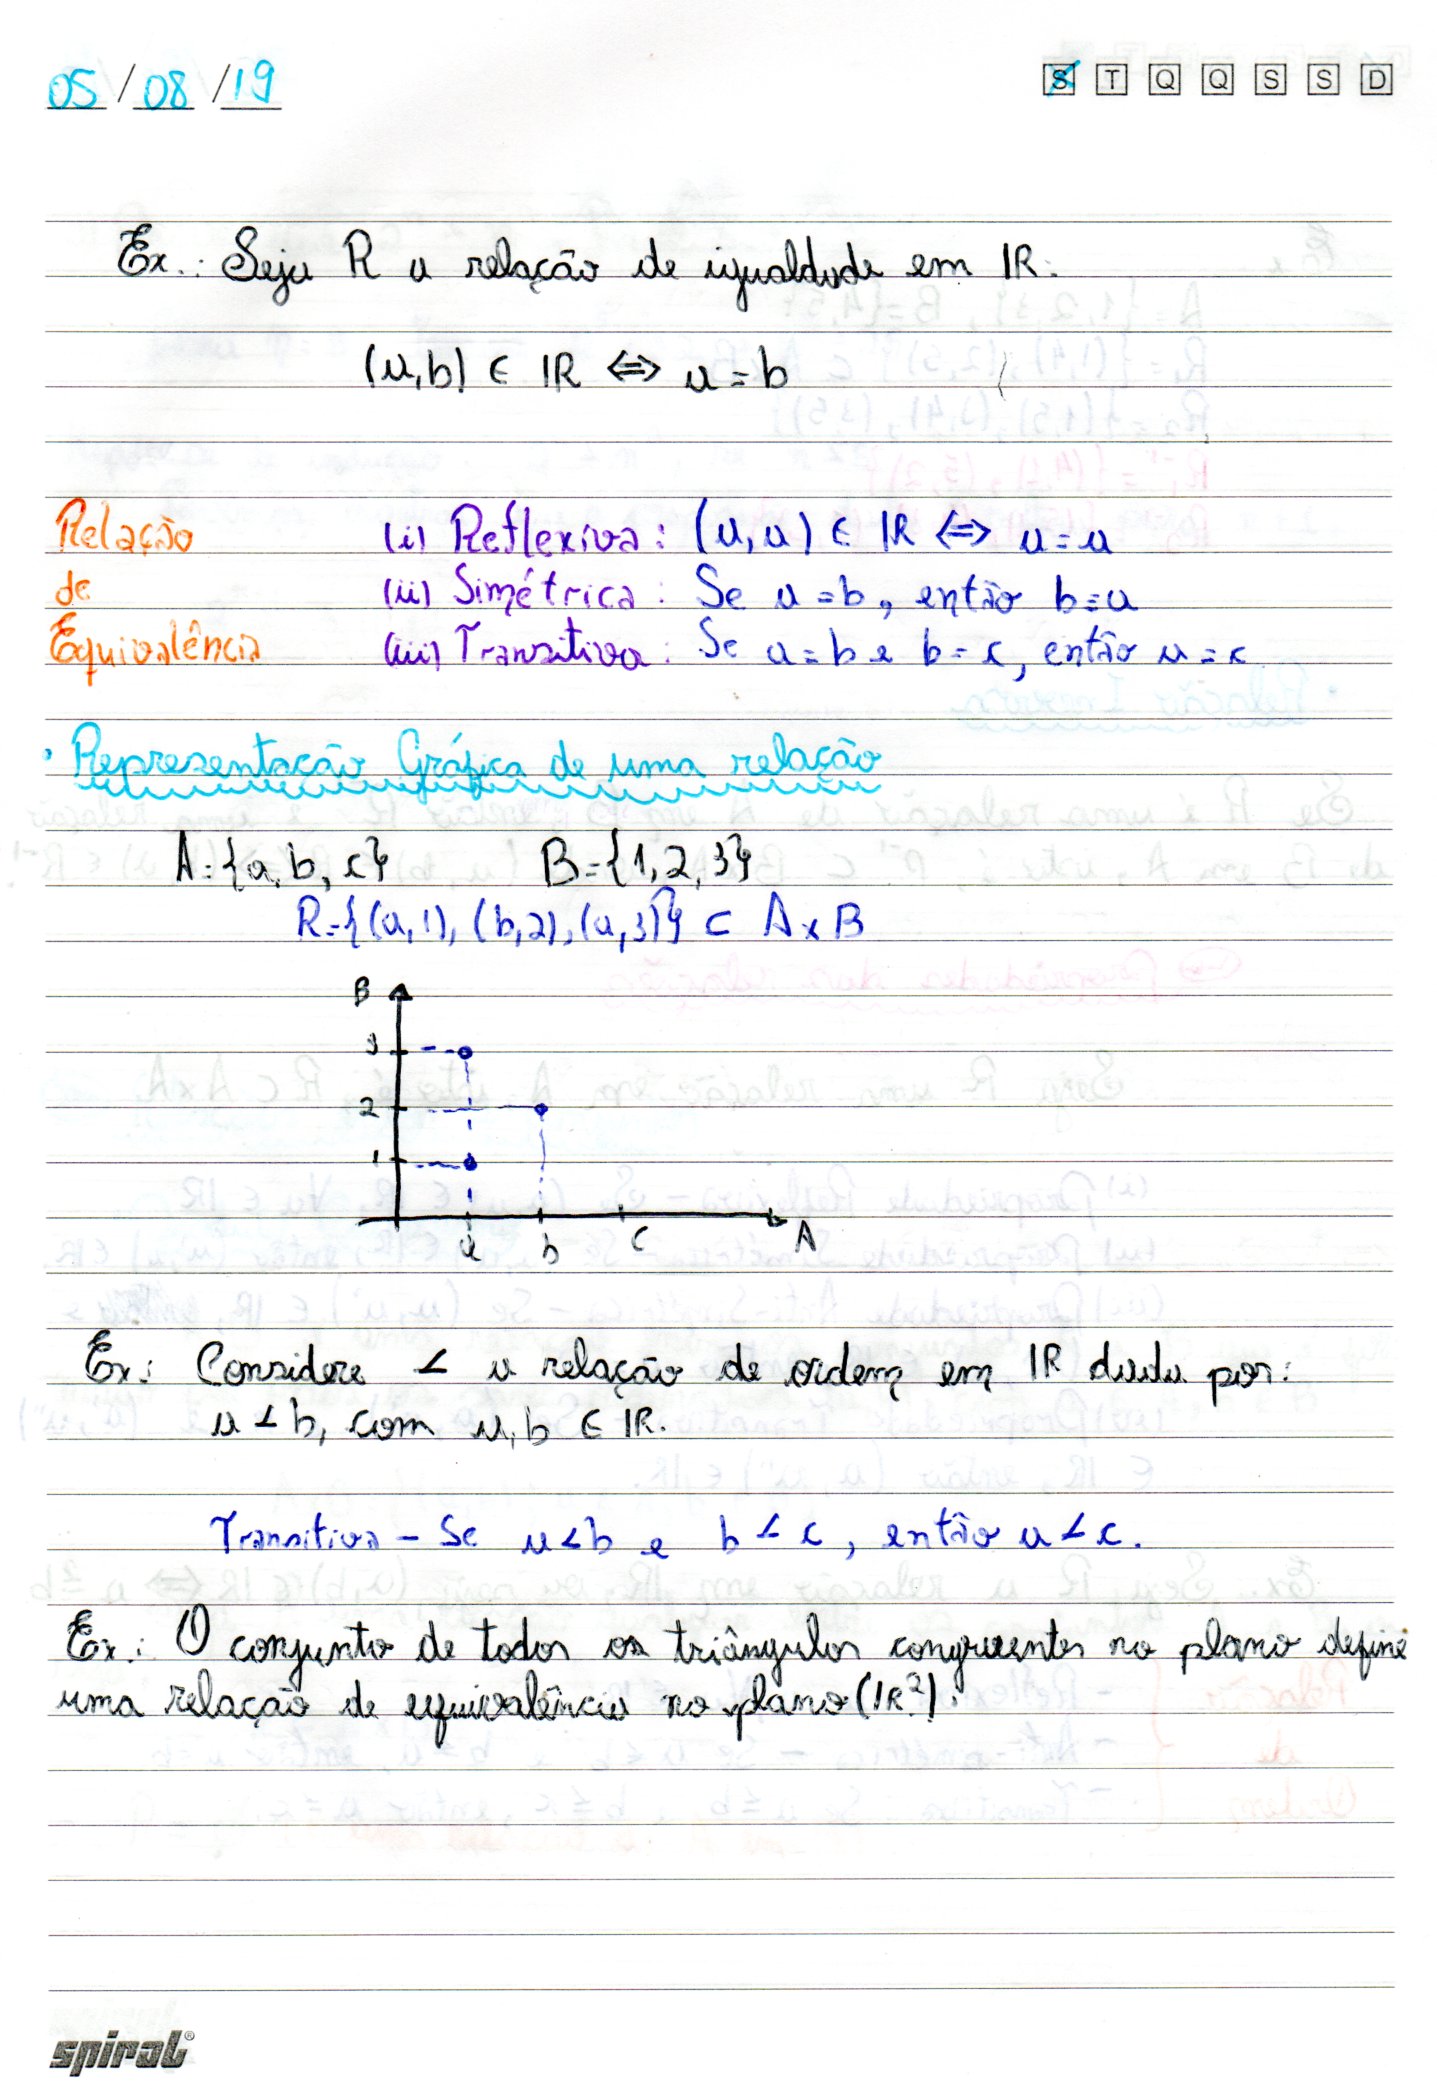 05 / 08 / 19 S T Q Q S S D
Ex.: Seja R a relação de igualdade em IR.
(a,b) ∈ IR ⇔ a = b
Relação (i) Reflexiva: (a,a) ∈ IR ⇔ a = a
de (ii) Simétrica: Se a = b, então b = a
Equivalência (iii) Transitiva: Se a = b e b = c, então a = c
· Representação Gráfica de uma relação
A = {a, b, c} B = {1, 2, 3}
R = {(a,1), (b,2), (a,3)} ⊂ A x B
B
3
2
1
a b c A
Ex: Considere < a relação de ordem em IR dada por:
a < b, com a, b ∈ IR.
Transitiva - Se a < b e b < c, então a < c.
Ex.: O conjunto de todos os triângulos congruentes no plano define
uma relação de equivalência no plano (IR²).
spiral®